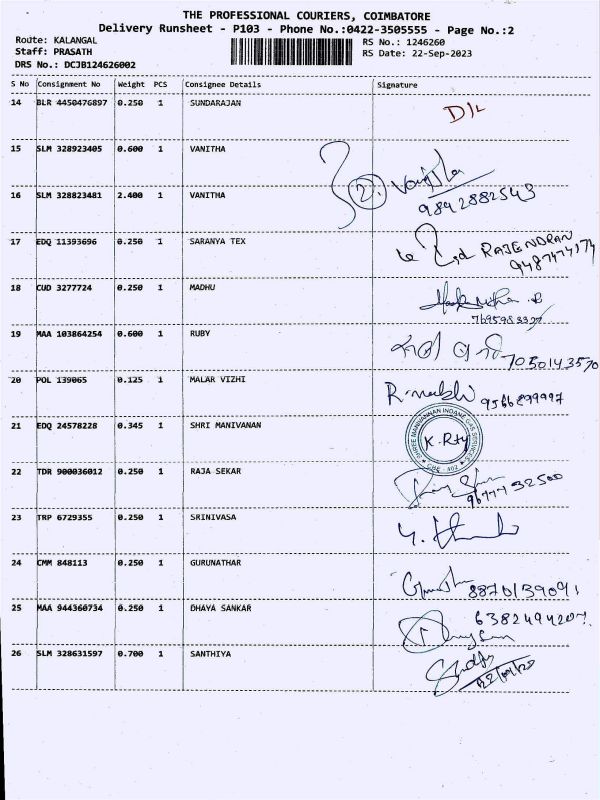 THE PROFESSIONAL COURIERS, COIMBATORE
Delivery Runsheet - P103 - Phone No.:0422-3505555 - Page No.:2
Route: KALANGAL
RS No.: 1246260
Staff: PRASATH
RS Date: 22-Sep-2023
DRS No.: DCJB124626002
S No Consignment No Weight PCS Consignee Details Signature
14 BLR 4450476897 0.250 1 SUNDARAJAN D/L
15 SLM 328923405 0.600 1 VANITHA
2. Vanitha
16 SLM 328823481 2.400 1 VANITHA 9842882543
17 EDQ 11393696 0.250 1 SARANYA TEX RAJENDRAN
9487474174
18 CUD 3277724 0.250 1 MADHU
7695983327
19 MAA 103864254 0.600 1 RUBY
7050143570
20 POL 139065 0.125 1 MALAR VIZHI
9566899997
21 EDQ 24578228 0.345 1 SHRI MANIVANAN
K. Rty
22 TDR 900036012 0.250 1 RAJA SEKAR
9677732500
23 TRP 6729355 0.250 1 SRINIVASA
24 CMM 848113 0.250 1 GURUNATHAR
8870139091
25 MAA 944360734 0.250 1 DHAYA SANKAR 6382494207
26 SLM 328631597 0.700 1 SANTHIYA